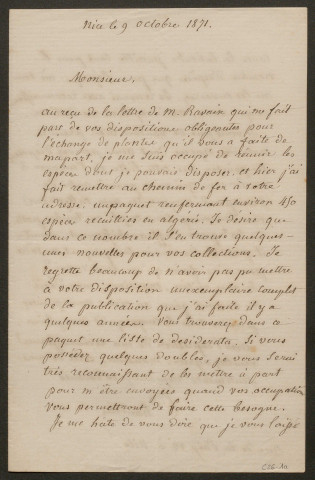 Nice le 9 Octobre 1871.
Monsieur,
au reçu de la lettre de M. Ravain qui me fait
part de vos dispositions obligeantes pour
l'échange de plantes qu'il vous a faite de
ma part, je me suis occupé de réunir les
espèces dont je pouvais disposer, et hier j'ai
fait remettre au chemin de fer à votre
adresse un paquet renfermant environ 450
espèces recueillies en algérie. Je désire que
dans ce nombre il s'en trouve quelques-
unes nouvelles pour vos collections. Je
regrette beaucoup de n'avoir pas pu mettre
à votre disposition un exemplaire complet
de la publication que j'ai faite il y a
quelques années. Vous trouverez dans ce
paquet une liste de desiderata. Si vous
possédez quelques doubles, je vous serai
très reconnaissant de les mettre à part
pour m'être envoyées quand vos occupations
vous permettront de faire cette besogne.
Je me hate de vous dire que je vous laisse